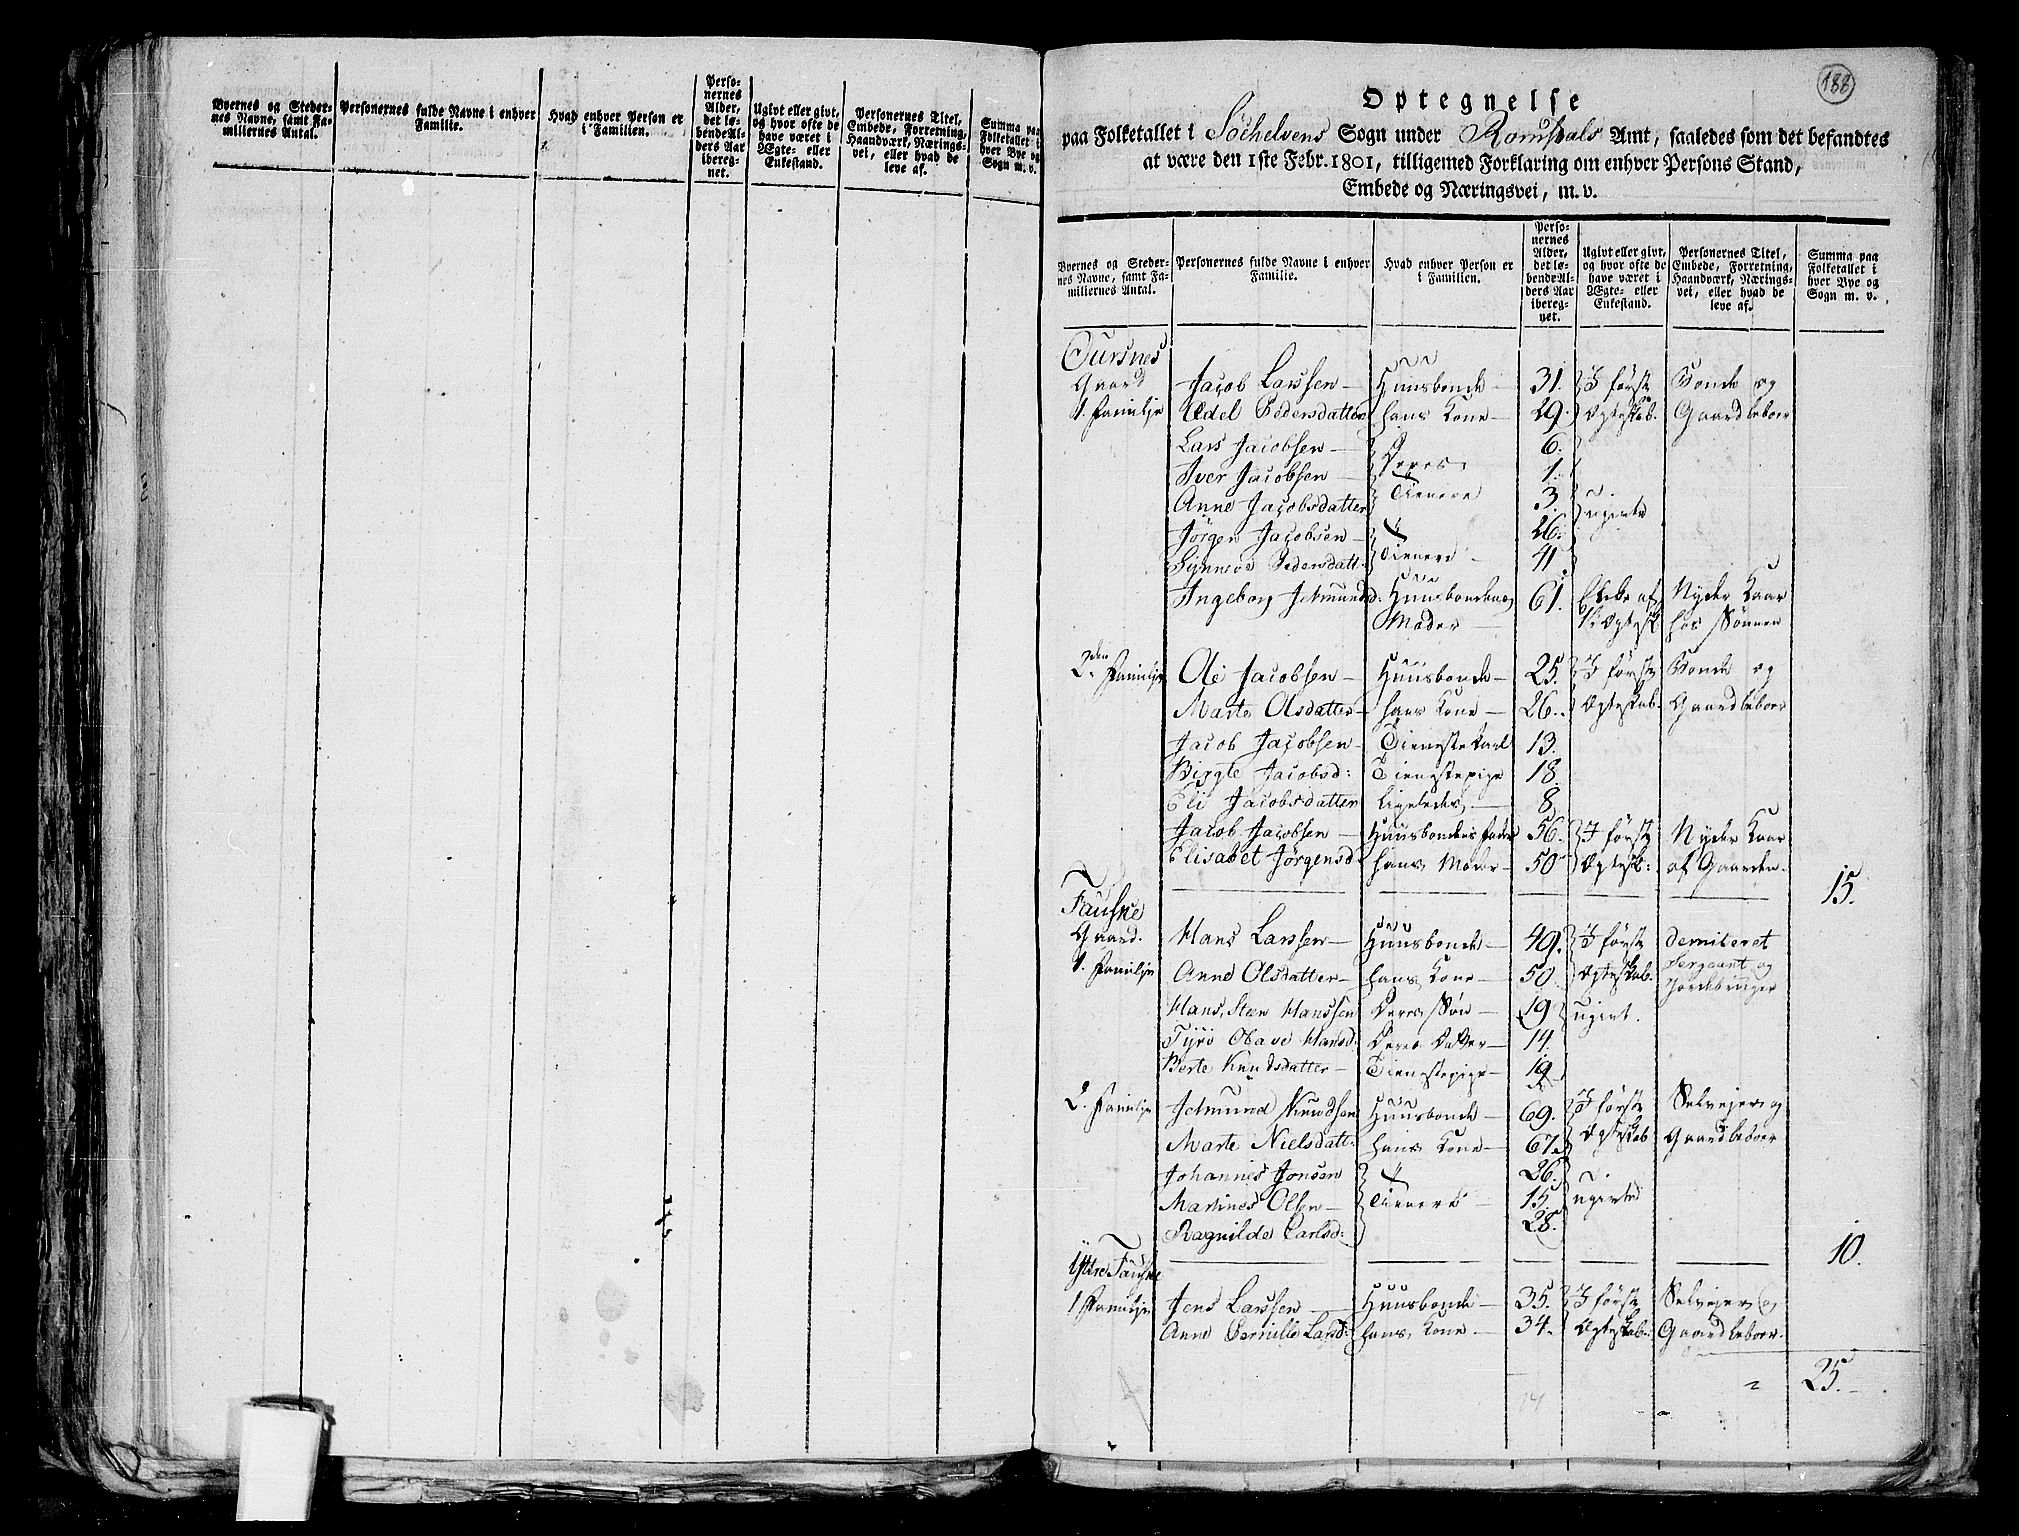 Byernes og Steder-
nes Navne, samt Fa-
miliernes Antal.
Personernes fulde Navne i enhver
Familie.
Hvad enhver Person er
i Familien.
Perso-
nernes
Alder,
det lø-
bende Al-
ders Aar
ibereg-
net.
Ugivt eller givt,
og hvor ofte de
have været i
Ægte- eller
Enkestand.
Personernes Titel,
Embede, Forretning,
Haandværk, Nærings-
vei, eller hvad de
leve af.
Summa paa
Folketallet i
hver Bye og
Sogn m. v.
188
Optegnelse
paa Folketallet i Söchelvens Sogn under Romsdals Amt, saaledes som det befandtes
at være den 1ste Febr. 1801, tilligemed Forklaring om enhver Persons Stand,
Embede og Næringsvei, m. v.
Byernes og Steder-
nes Navne, samt Fa-
miliernes Antal.
Personernes fulde Navne i enhver
Familie.
Hvad enhver Person er
i Familien.
Perso-
nernes
Alder,
det lø-
bende Al-
ders Aar
ibereg-
net.
Ugivt eller givt,
og hvor ofte de
have været i
Ægte- eller
Enkestand.
Personernes Titel,
Embede, Forretning,
Haandværk, Nærings-
vei, eller hvad de
leve af.
Summa paa
Folketallet i
hver Bye og
Sogn m. v.
Tursnes
Gaard Jacob Larssen — Huusbonde 31. I første Bonde og
1. Familje Edel Pedersdatter hans Kone — 29. Ægteskab. Gaardbeboer
Lars Jacobsen — Deres 6.
Iver Jacobsen — 1.
Anne Jacobsdatter Tienere 3. ugivte
Jørgen Jacobsen — 26.
Synneve Pedersdatt: Tienere 41
Ingeborg Jetmundsd: Huusbondens 61. Enke af Nyder Kaar
Moder — 1t Ægtesk. hos Sønnen
2den Familje Ole Jacobsen — Huusbonde — 25. I første Bonde og
Marte Olsdatter — hans Kone — 26. Ægteskab. Gaardbeboer
Jacob Jacobsen — Tienestekarl 13.
Birgte Jacobsd: Tienestepige 18.
Eli Jacobsdatter Ligeledes — 8.
Jacob Jacobsen — Huusbondes Fader 56. I første Nyder Kaar
Elisabet Jørgensd: hans Moder — 50 Ægtesk: af Gaarden. 15.
Fauske
Gaard. Hans Larssen — Huusbonde — 49. I første demiteret
1. Familje Anne Olsdatter — hans Kone — 50. Ægteskab. Sergeant og
Jordebruger
Hans Steen Hanssen Deres Søn — 19 ugivt.
Tyre Olave Hansd: Deres Datter — 14.
Berte Knudsdatter — Tienestepige — 19
2. Familje Jetmund Knudsen Huusbonde — 69. I første Selvejer og
Marte Nielsdatt: hans Kone — 67. Ægteskab Gaardbeboer
Johannes Jonsen 26.
Martines Olsen — Tienere 15. ugivte
Ragnilde Carlsd: 28. 10.
Yttre Fauske
1 Familje Jens Larssen — Huusbonde — 35. I første Selvejer og
Anne Pernille Larsd: hans Kone — 34. Ægteskab. Gaardbeboer.
25.